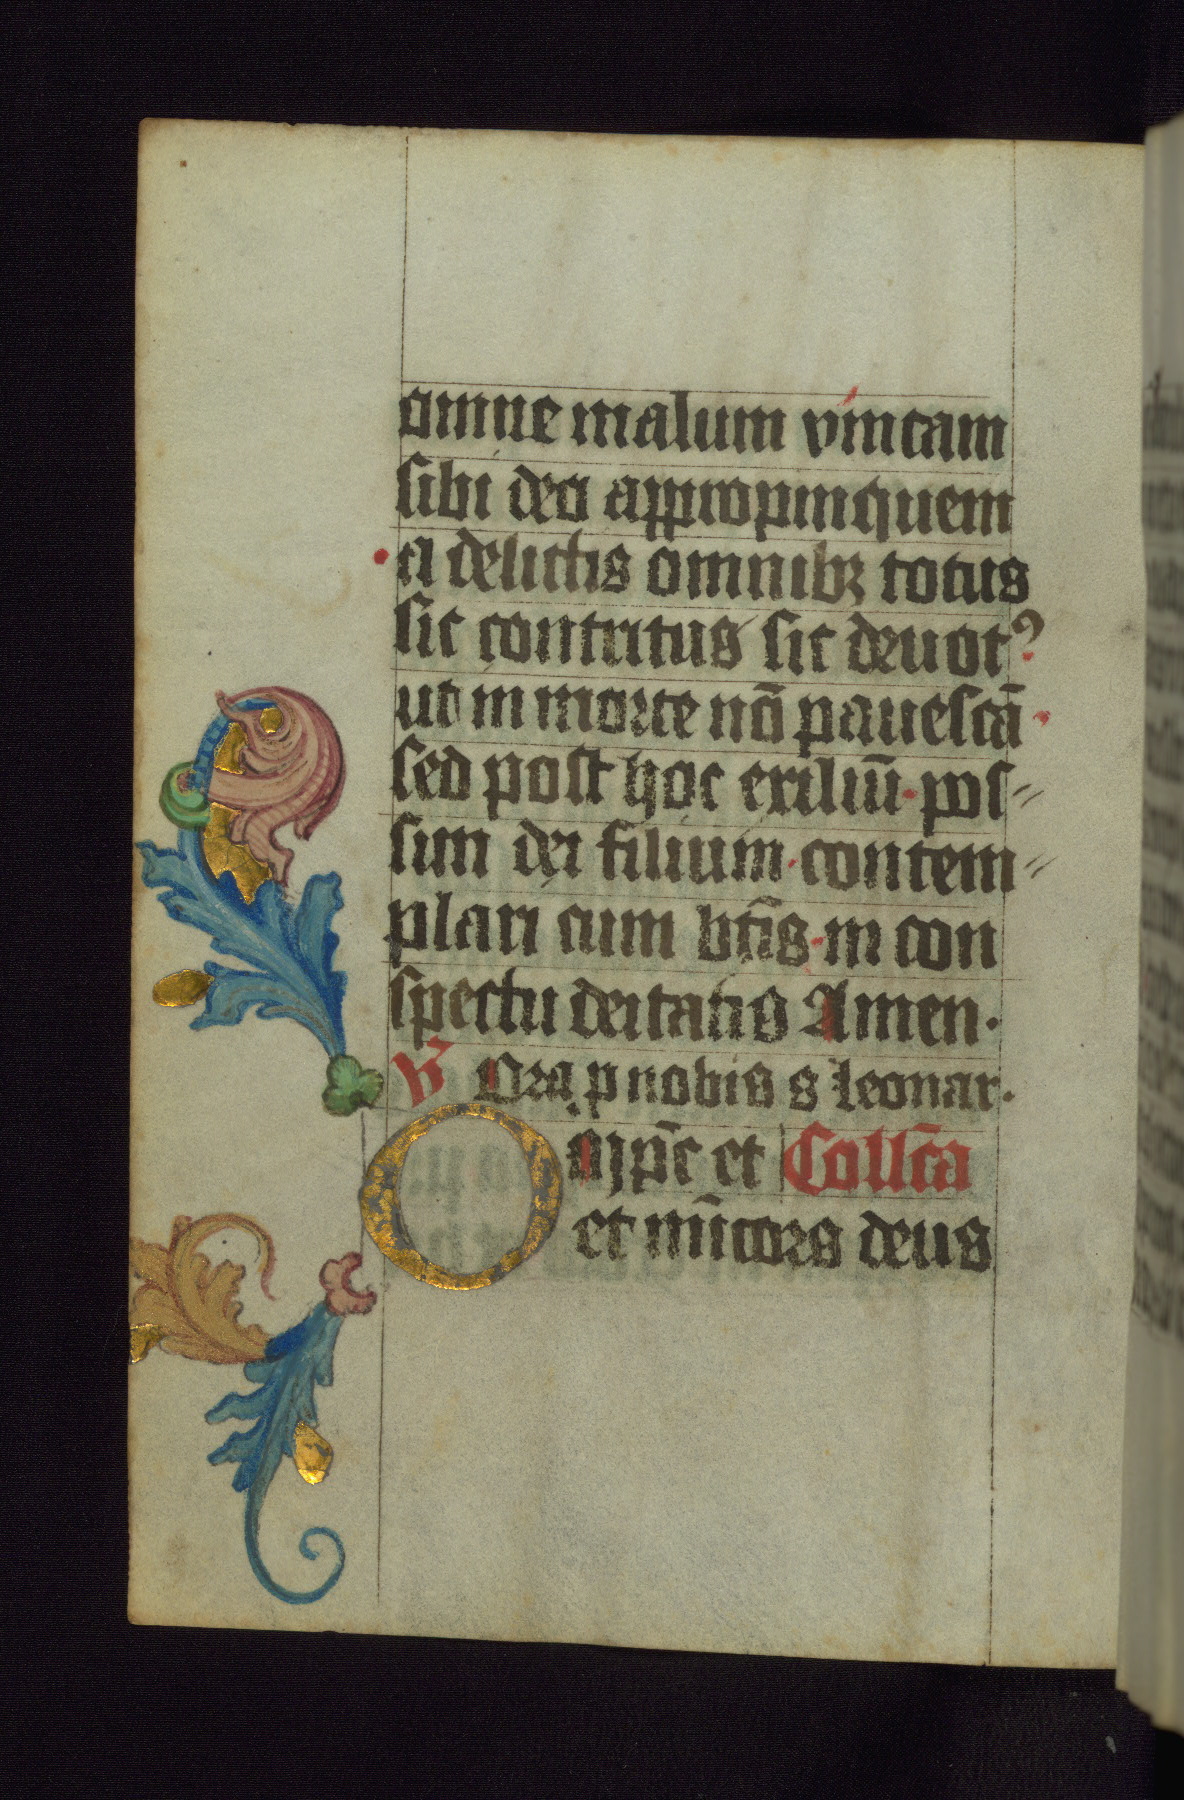 omne malum vincam
sibi deo appropinquem
a delictis omnibꝫ totus
sic contritus sic deuotꝰ
ut in morte nō pauescā
sed post hoc exiliū pos=
sim dei filium contem=
plari cum btīs in con
spectu deitatis Amen.
℣ Ora p nobis s leonar.
O mp̄c et Collc̄a
et mīcors deus